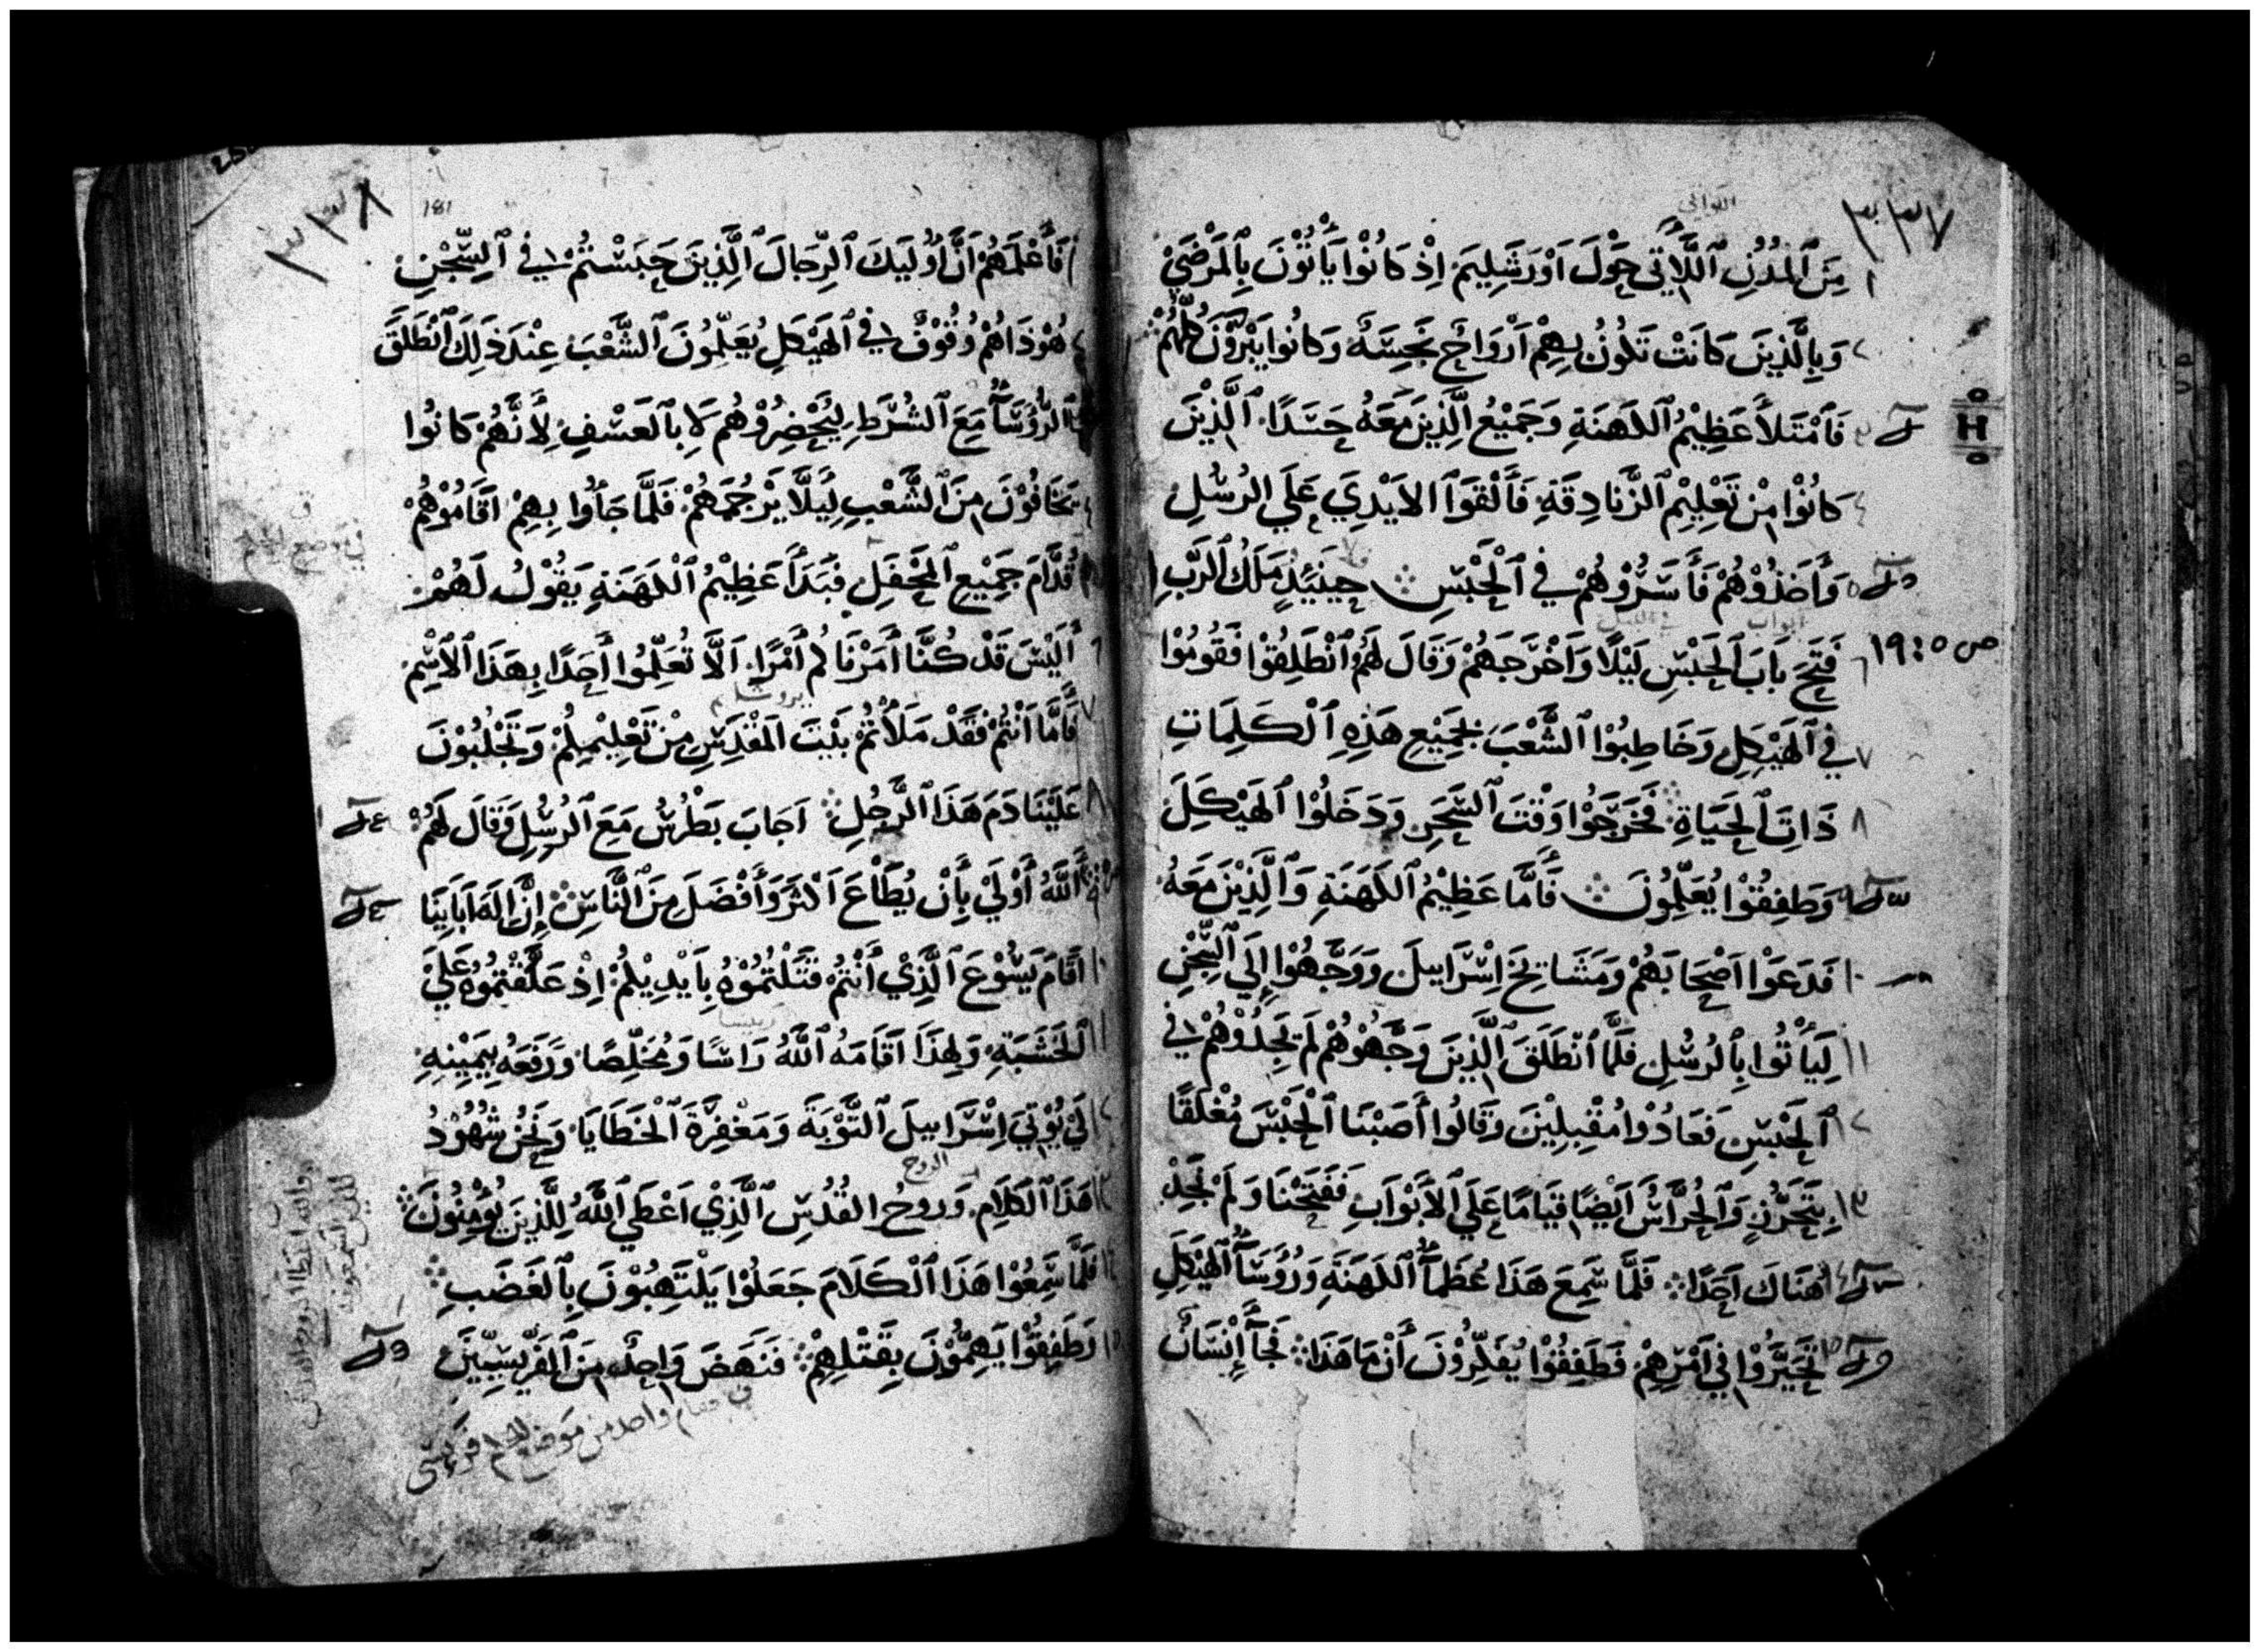 ٣٣٧
اللواتي
١ مِنَ ٱلمُدُنِ ٱللَّاتِي حَوْلَ اَوْرَشَلِيمَ اِذْ كَانُوْا يَأْتُوْنَ بِٱلمَرْضَيْ
٢ وَبِالَّذِينَ كَانَتْ تَكُوْنُ بِهِمْ اَرْوَاحٌ نَجِسَةٌ وَكَانُوا يَبْرَؤُنَ كُلُّهُمْ
٣ فَٱمْتَلأَ عَظِيْمُ ٱلكَهَنَةِ وَجَمِيْعُ الَّذِينَ مَعَهُ حَسَدًا ٱلَّذِيْنَ
٤ كَانُوْا مِنْ تَعْلِيْمِ ٱلزَّنَادِقَةِ فَأَلْقَوَا ٱلاَيْدِيَ عَلَي الرُسُلِ
٥ وَأَخَذُوْهُمْ فَأَسَرُوْهُمْ فِي ٱلْحَبْسِ حِينَئِذٍ مَلَكُ ٱلرَّبِ
ابواب في الليل
ص ٥:١٩
٦ فَتَحَ بَابَ ٱلحَبْسِ لَيْلًا وَاَخْرَجَهُمْ وَقَالَ لَهُمُ ٱنْطَلِقُوْا فَقُومُوْا
٧ فِي ٱلهَيْكَلِ وَخَاطِبُوْا ٱلشَّعْبَ بِجَمِيْعِ هَذِهِ ٱلْكَلِمَاتِ
٨ ذَاتِ ٱلحَيَاةِ فَخَرَجُوْا وَقْتَ ٱلسَّحَرِ وَدَخَلُوْا ٱلهَيْكَلَ
٩ وَطَفِقُوْا يُعَلِّمُونَ فَأَمَّا عَظِيْمُ ٱلكَهَنَةِ وَٱلَّذِيْنَ مَعَهُ
١٠ فَدَعَوْا اَصْحَابَهُمْ وَمَشَايِخَ اِسْرَاييلَ وَوَجَّهُوْا إِلَي ٱلسِّجْنِ
١١ لِيَأْتُوا بِٱلرُسُلِ فَلَّمَا ٱنْطَلَقَ ٱلَّذِينَ وَجَّهُوْهُمْ لَمْ يَجِدُوْهُمْ فِي
١٢ ٱلحَبْسِ فَعَادُوْا مُقْبِلِيْنَ وَقَالُوا أَصَبْنَا ٱلْحَبْسَ مُغْلَقًا
١٣ بِتَحَرُّزٍ وَٱلحُرَّاسُ اَيْضًا قِيَامًا عَلَي ٱلاَبْوَابِ فَفَتَحْنَا وَلَمْ نَجِدْ
١٤ هُنَاكَ اَحَدًا فَلَّمَا سَمِعَ هَذَا عُظَمَآءُ ٱلكَهَنَةِ وَرُوَسَآءُ ٱلهَيْكَلِ
١٥ تَحَيَّرُوْا فِي اَمْرِهِمْ فَطَفِقُوْا يُفَكِّرُوْنَ أَنْ مَا هَذَا فَجَآءَ إِنْسَانٌ
٣٣٨
181
١ فَأَعْلَمَهُمْ اَنَّ اُوْلَيِكَ ٱلرِّجَالَ ٱلَّذِينَ حَبَسْتُمْ فِي ٱلسِّجْنِ
٢ هُوْذَا هُمْ وُقُوْفٌ فِي ٱلهَيْكَلِ يُعَلِّمُونَ ٱلشَّعْبَ عِنْدَ ذَلِكَ ٱنْطَلَقَ
ٱلرُّؤَسَآءُ مَعَ ٱلشُرَطِ لِيُحْضِرُوْهُمْ لَا بِٱلعَسْفِ لأَنَّهُمْ كَانُوا
٤ يَخَافُوْنَ مِنَ ٱلشَّعْبِ لِيَلَّا يَرْجُمَهُمْ فَلَمَّا جَآوُا بِهِمْ اَقَامُوْهُمْ
قُدَّامَ جَمِيْعِ ٱلمَحْفَلِ فَبَدَأَ عَظِيْمُ ٱلْكَهَنَةِ يَقُوْلُ لَهُمْ
٦ أَلَيْسَ قَدْ كُنَّا أَمَرْنَاكُمْ أَمْرًا اَلَّا تُعَلِّمُوا أَحَدًا بِهَذَا ٱلاَسْمِ
يروشليم
٧ فَأَمَّا اَنْتُمْ فَقَدْ مَلأْتُمْ بَيْتَ المَقْدِسِ مِنْ تَعْلِيْمِكُمْ وَتَجْلُبُوْنَ
٨ عَلَيْنَا دَمَ هَذَا ٱلرَّجُلِ اَجَابَ بَطْرُسُ مَعَ ٱلرُسُلِ وَقَالَ لَهُمْ
ٱللَّهُ أَوْلَيْ بِأَنْ يُطَاعَ اَكْثَرَ وَأَفْضَلَ مِنَ ٱلنَّاسِ إِنَّ إِلَهَ اَبَايِنَا
١٠ اَقَامَ يَسُوْعَ ٱلَّذِيْ أَنْتُمْ قَتَلْتُمُوْهُ بِاَيْدِيْكُمْ اِذْ عَلَّقْتُمُوْهُ عَلَيْ
رييسا
١١ ٱلخَشَبَةِ وَلِهَذَا اَقَامَهُ ٱللَّهُ رَاسًا وَمُخَلِّصًا وَرَفَعَهُ بِيَمِيْنِهِ
١٢ لِكَيْ يُوْتِيَ اِسْرَاييلَ ٱلتَّوْبَةَ وَمَغْفِرَةَ ٱلْخَطَايَا وَنَحْنُ شُهُوْدُ
الروح
١٣ هَذَا ٱلكَلَامِ وَرُوحُ القُدُسِ ٱلَّذِيْ اَعْطَي ٱللَّهُ لِلَّذِينَ يُؤْمِنُوْنَ
١٤ فَلَّمَا سَمِعُوْا هَذَا ٱلْكَلَامَ جَعَلُوْا يَلْتَهِبُوْنَ بِٱلغَضَبِ
١٥ وَطَفِقُوْا يَهِمُّوْنَ بِقَتْلِهِمْ فَنَهَضَ وَاحِدٌ مِنَ ٱلفَرِّيسِيِّينَ
واحد من موضع